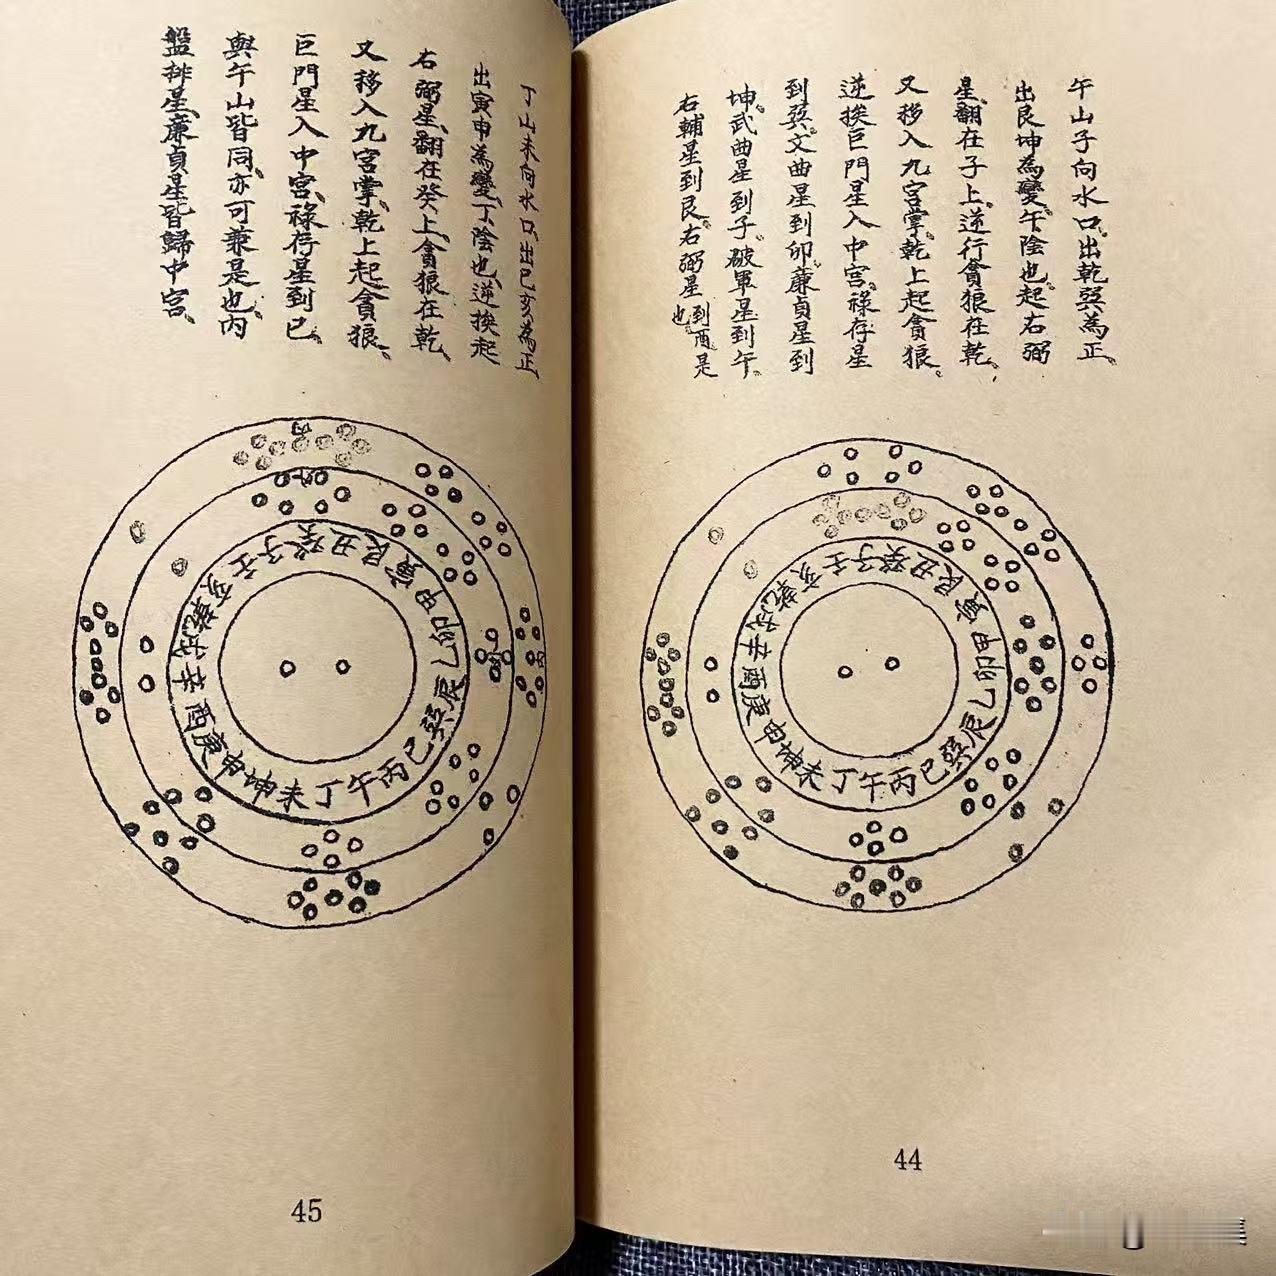 午山子向水口。出乾巽為正。
出艮坤為變。午陰也。起右弼
星。翻在子上。逆行貪狼在乾。
又移入九宮掌。乾上起貪狼。
逆挨巨門星入中宮。祿存星
到巽。文曲星到卯。廉貞星到
坤。武曲星到子。破軍星到午。
右輔星到艮。右弼星到酉。是
也。
壬子癸丑艮寅甲卯乙辰巽巳丙午丁未坤申庚酉辛戌乾亥
44
丁山未向水口。出巳亥為正、
出寅申為變、丁陰也、逆挨起
右弼星、翻在癸上、貪狼在乾、
又移入九宮掌、乾上起貪狼、
巨門星入中宮、祿存星到巳、
與午山皆同、亦可兼是也、內
盤排星、廉貞星皆歸中宮、
內
外
壬子癸丑艮寅甲卯乙辰巽巳丙午丁未坤申庚酉辛戌乾亥
45